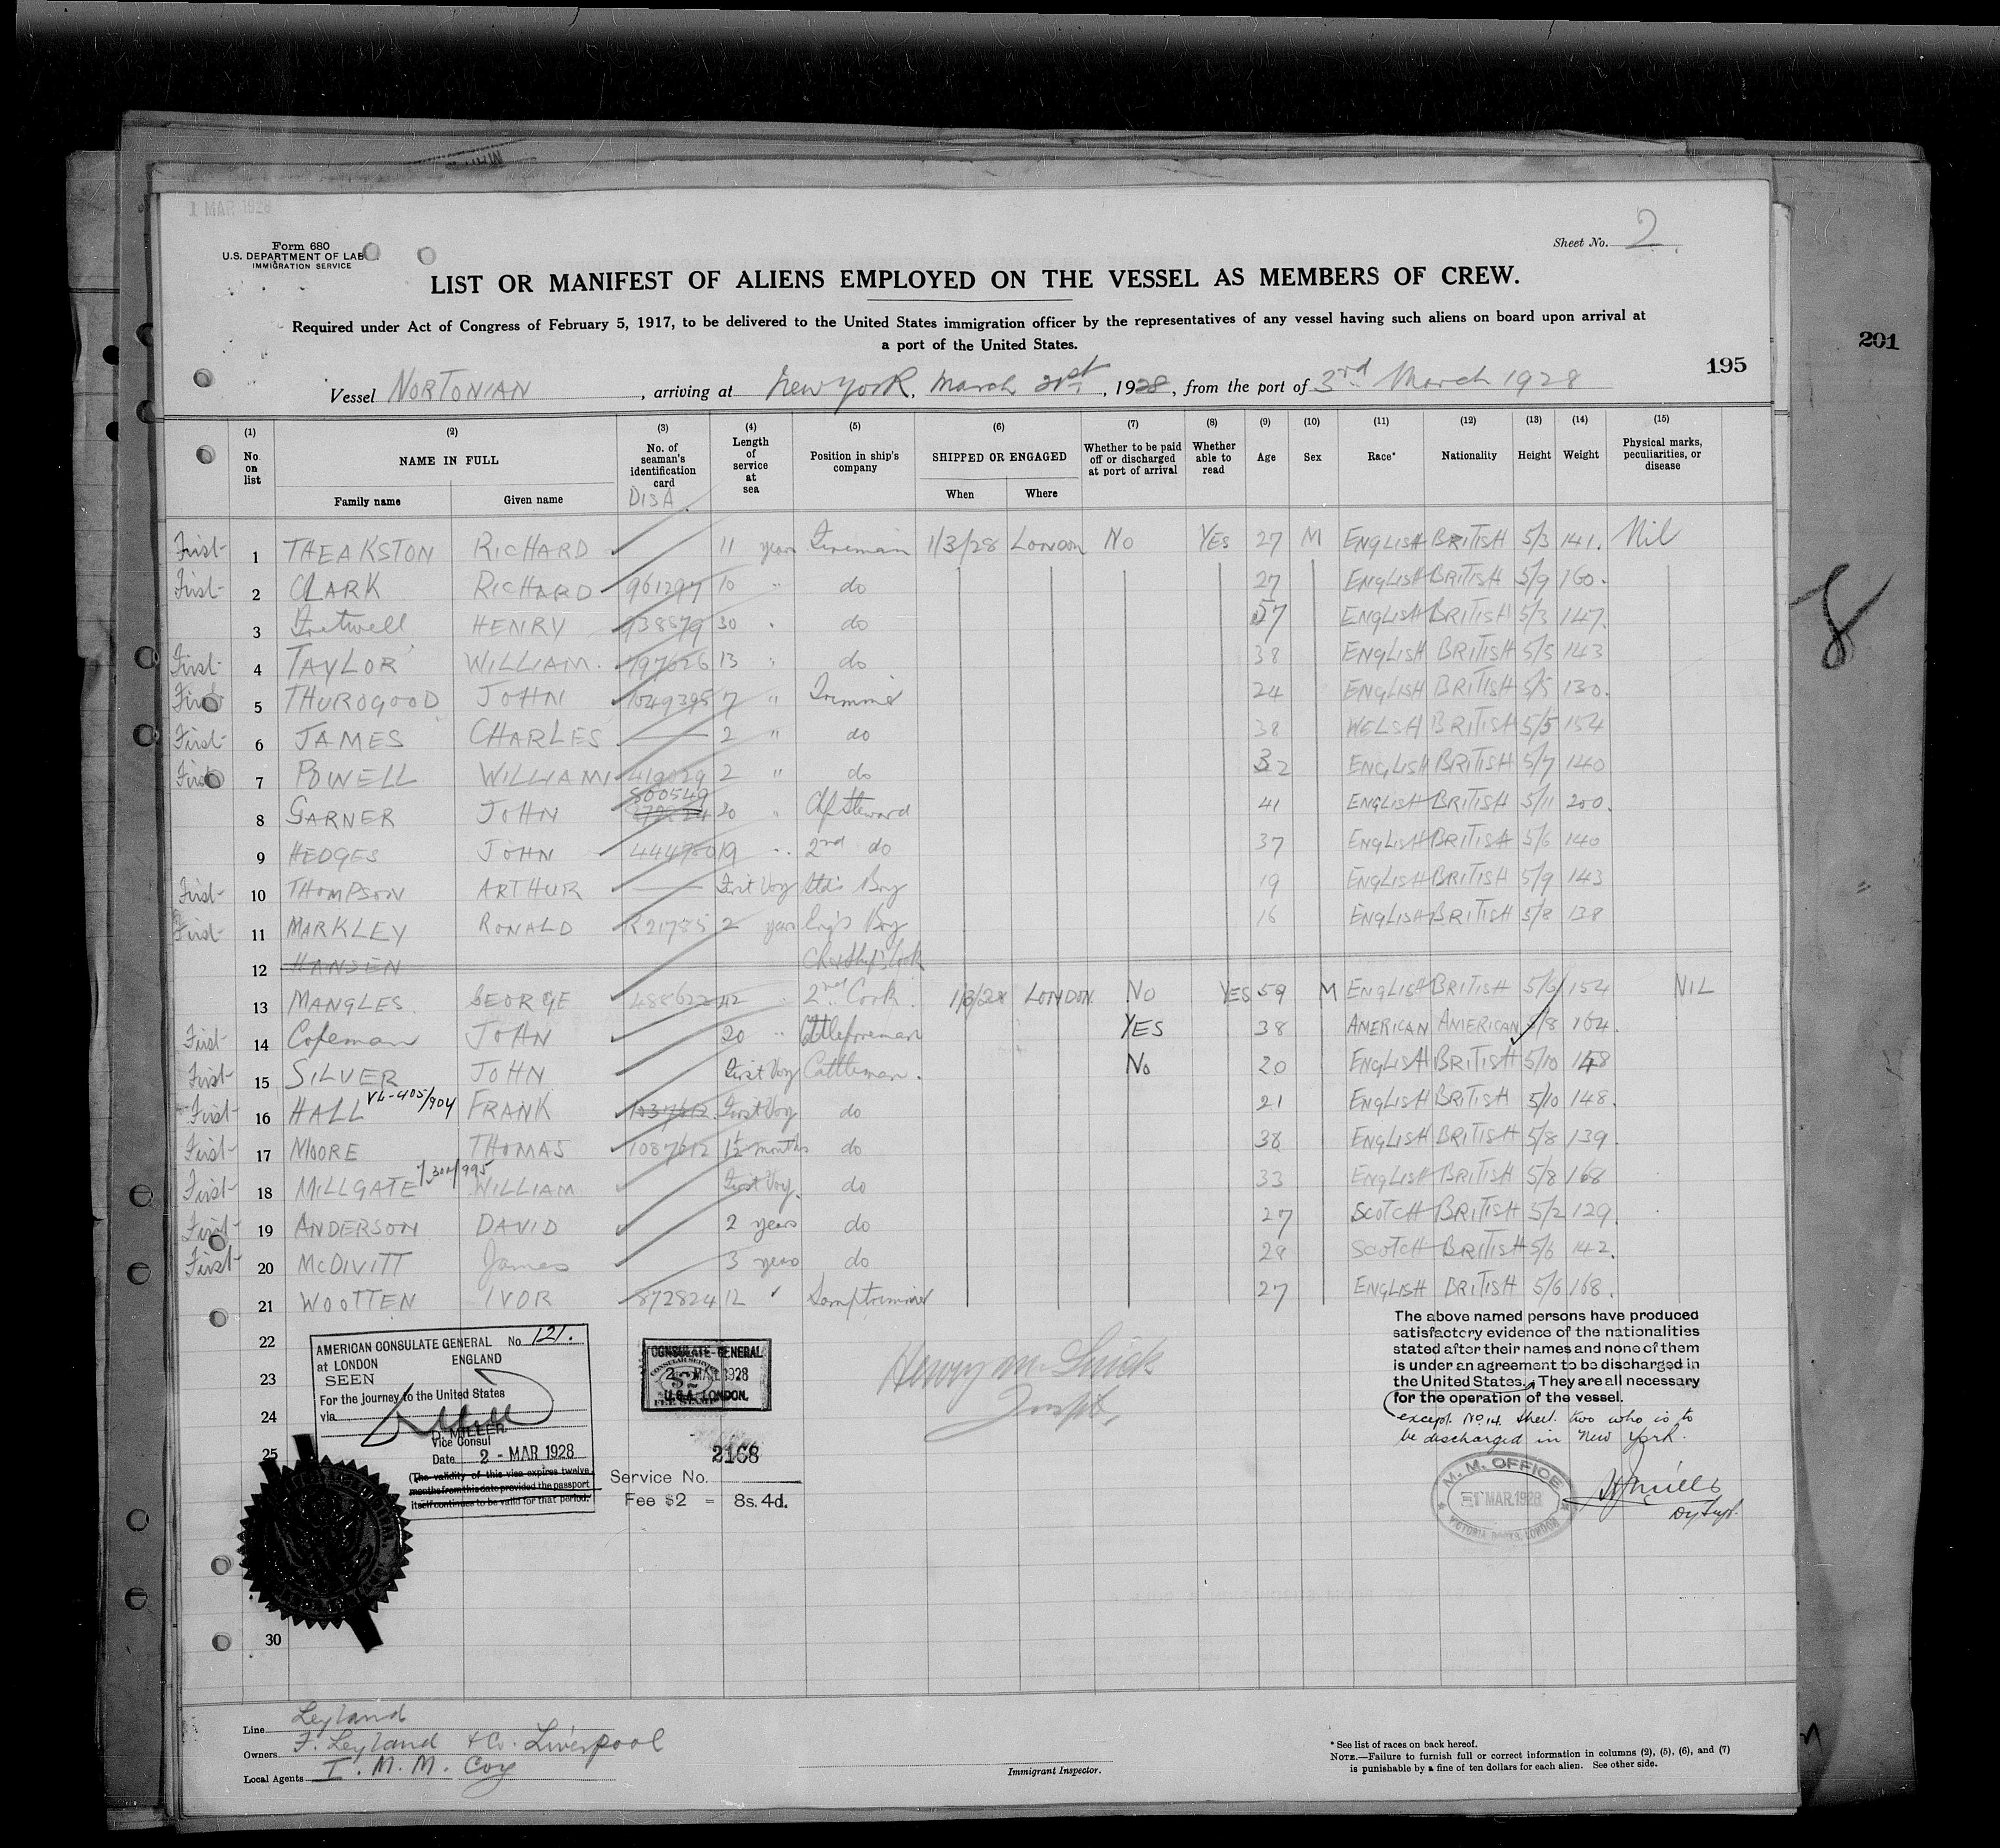 1 MAR 1928
Form 680
U.S. DEPARTMENT OF LAB
IMMIGRATION SERVICE
Sheet No. 2
LIST OR MANIFEST OF ALIENS EMPLOYED ON THE VESSEL AS MEMBERS OF CREW.
Required under Act of Congress of February 5, 1917, to be delivered to the United States immigration officer by the representatives of any vessel having such aliens on board upon arrival at
a port of the United States.
195
201
Vessel NORTONIAN, arriving at New York, March 21st, 1928, from the port of 3rd March 1928
(1) (2) (3) (4) (5) (6) (7) (8) (9) (10) (11) (12) (13) (14) (15)
No. on list NAME IN FULL Family name Given name No. of seaman's identification card Length of service at sea Position in ship's company SHIPPED OR ENGAGED When Where Whether to be paid off or discharged at port of arrival Whether able to read Age Sex Race* Nationality Height Weight Physical marks, peculiarities, or disease
DIS A
First 1 THEAKSTON RICHARD 11 years Fireman 1/3/28 LONDON NO YES 27 M ENGLISH BRITISH 5/3 141. Nil
First 2 CLARK RICHARD 961297 10 " do 27 ENGLISH BRITISH 5/9 160.
3 Fretwell HENRY 738579 30 " do 57 ENGLISH BRITISH 5/3 147.
First 4 TAYLOR WILLIAM. 797626 13 " do 38 ENGLISH BRITISH 5/5 143
First 5 THUROGOOD JOHN 1049395 7 " Trimmer 24 ENGLISH BRITISH 5/5 130.
First 6 JAMES CHARLES — 2 " do 38 WELSH BRITISH 5/5 154
First 7 POWELL WILLIAM 419029 2 " do 32 ENGLISH BRITISH 5/7 140
8 GARNER JOHN 800549 20 " Chf Steward 41 ENGLISH BRITISH 5/11 200.
9 HEDGES JOHN 444980 19 " 2nd do 37 ENGLISH BRITISH 5/6 140
First 10 THOMPSON ARTHUR — First Voy Stds Boy 19 ENGLISH BRITISH 5/9 143
First 11 MARKLEY RONALD R21785 2 years Eng's Boy 16 ENGLISH BRITISH 5/8 138
12 HANSEN Chf & Ship's Cook
13 MANGLES GEORGE 488622 42 2nd Cook. 1/3/28 LONDON. NO YES 59 M ENGLISH BRITISH 5/6 154 NIL
First 14 Copeman JOHN 20 " Cattleforeman YES 38 AMERICAN AMERICAN 5/8 164.
First 15 SILVER JOHN First Voy Cattleman. No 20 ENGLISH BRITISH 5/10 148
First 16 HALL VL-405/904 FRANK First Voy do 21 ENGLISH BRITISH 5/10 148.
First 17 MOORE THOMAS 1087612 1½ months do 38 ENGLISH BRITISH 5/8 139.
First 18 MILLGATE WILLIAM First Voy. do 33 ENGLISH BRITISH 5/8 168
First 19 ANDERSON DAVID 2 years do 27 SCOTCH BRITISH 5/2 129.
First 20 McDIVITT James 3 years do 28 SCOTCH BRITISH 5/6 142.
21 WOOTTEN IVOR 872824 12 " Lamptrimmer 27 ENGLISH BRITISH 5/6 168.
22
23
24
25
30
8
AMERICAN CONSULATE GENERAL No. 121.
at LONDON ENGLAND
SEEN
For the Journey to the United States
via
D. MILLER
Vice Consul
Date 2 - MAR 1928
(The validity of this visa expires twelve
months from this date provided the passport
itself continues to be valid for that period.
CONSULATE-GENERAL
2 MAR 1928
U.S.A. LONDON.
FEE STAMP
2168
Service No.
Fee $2 = 8s. 4d.
The above named persons have produced
satisfactory evidence of the nationalities
stated after their names and none of them
is under an agreement to be discharged in
the United States. They are all necessary
for the operation of the vessel.
except No 14 Sheet two who is to
be discharged in New York.
M. M. OFFICE
1 MAR. 1928
VICTORIA DOCKS, LONDON
Dy Supt.
Line Leyland
Owners F. Leyland & Co. Liverpool
Local Agents I. M. M. Coy
Immigrant Inspector.
* See list of races on back hereof.
NOTE.—Failure to furnish full or correct information in columns (2), (5), (6), and (7)
is punishable by a fine of ten dollars for each alien. See other side.